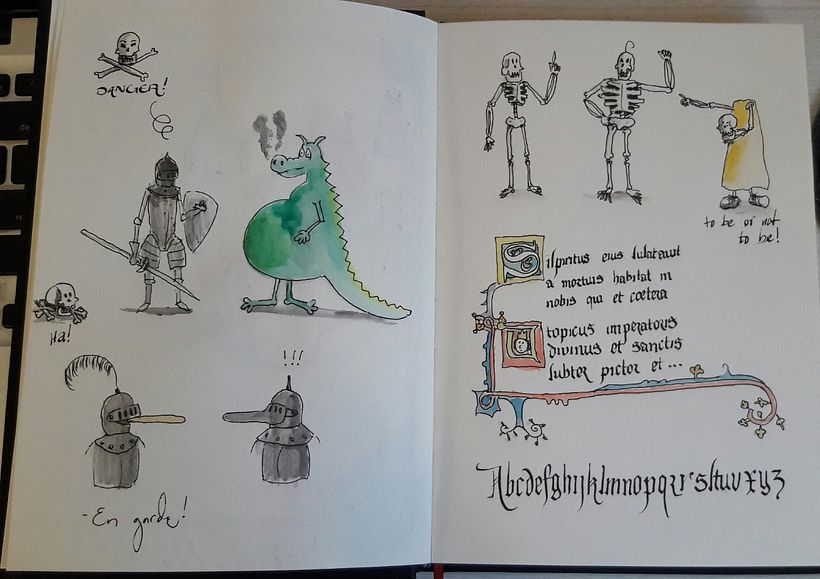 DANGER!
Ha!
!!!
-En garde!
to be or not
to be!
Si spiritus eius
a mortuis habitat in
nobis qui et coetera
topicus imperatoris
divinus et sanctis
subter pictor et ...
Abcdefghijklmnopqrr'sstuvxyz